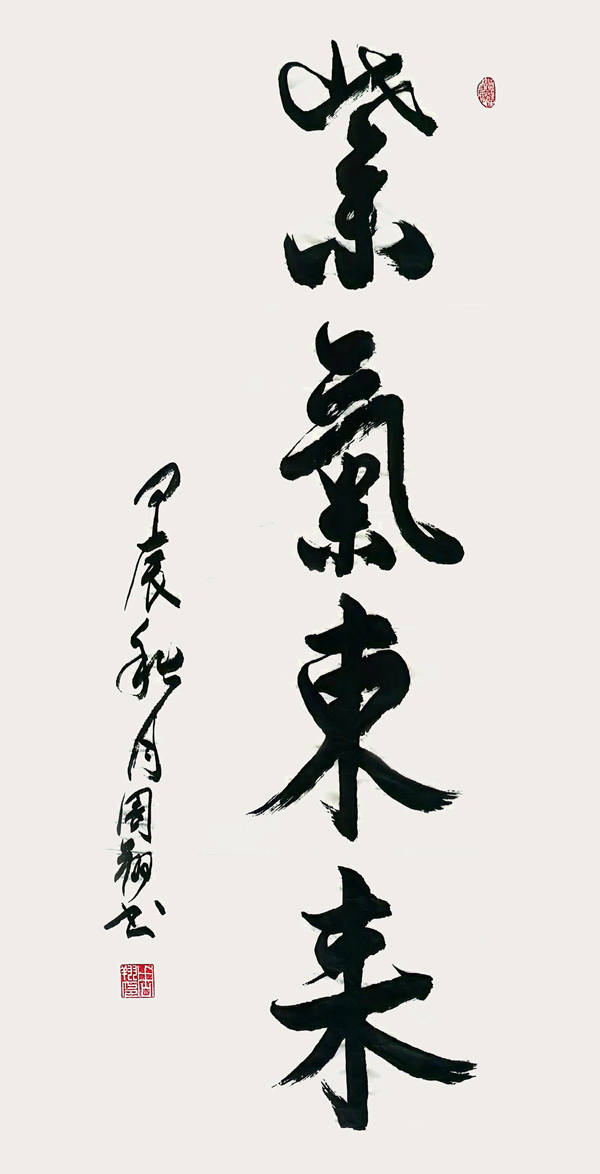 紫氣東来
甲辰秋月周翔书